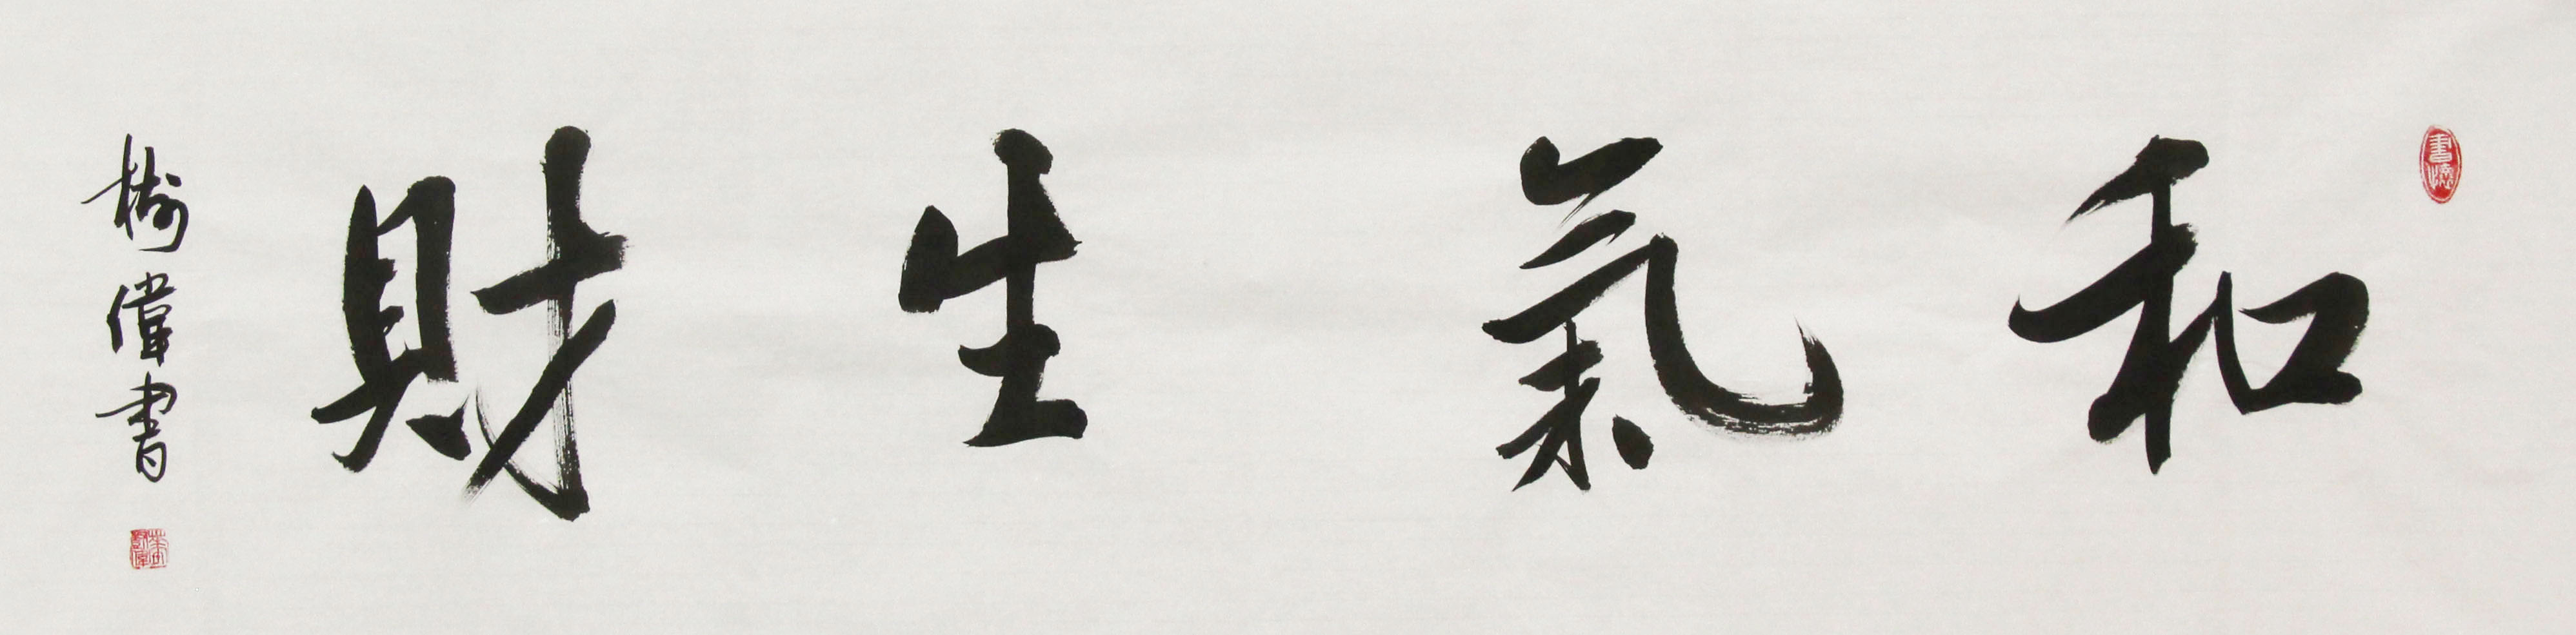 和氣生財
樹偉書